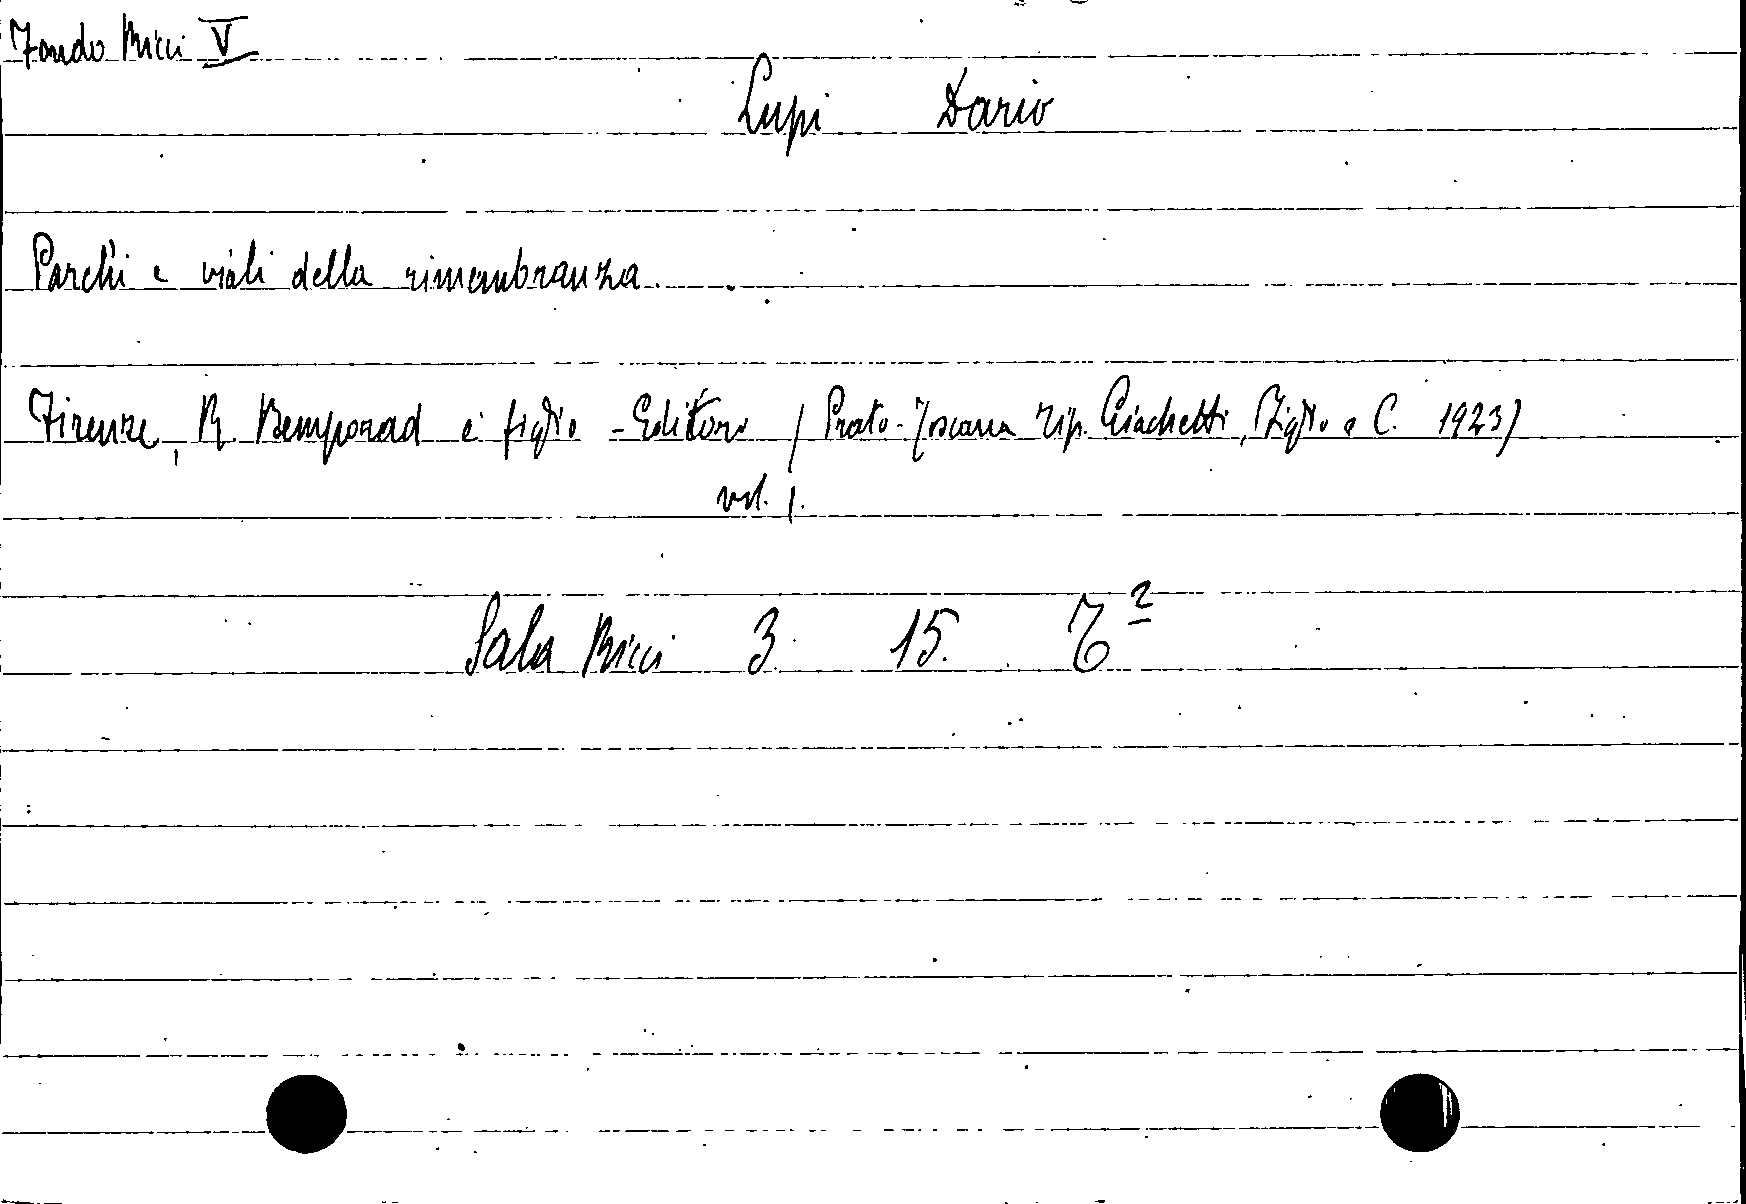 Fondo Ricci V
Lupi Dario
Parchi e viali della rimembranza.
Firenze, R. Bemporad e figlio - Editore (Prato-Toscana Tip. Giachetti, Figlio e C. 1923)
vol. 1.
Sala Ricci 3. 15. 2